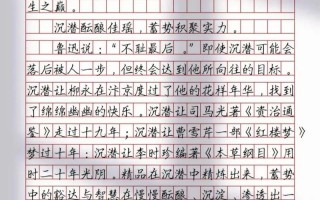 生之巅。
沉潜酝酿佳瑶，蓄势积聚实力。
鲁迅说：“不耻最后。”即使沉潜可能会
落后被人一步，但终会达到他所向往的目标。
沉潜让柳永在汴京度过了他的花样年华，找到
了绵绵幽幽的快乐。沉潜让司马光著《资治通
鉴》走过十九年；沉潜让曹雪芹一部《红楼梦》
梦过十年；沉潜让李时珍编著《本草纲目》用
时二十年光阴。精品在沉潜中精炼出来，蓄势
中的豁达与智慧在慢慢酝酿、沉淀、渗透出一